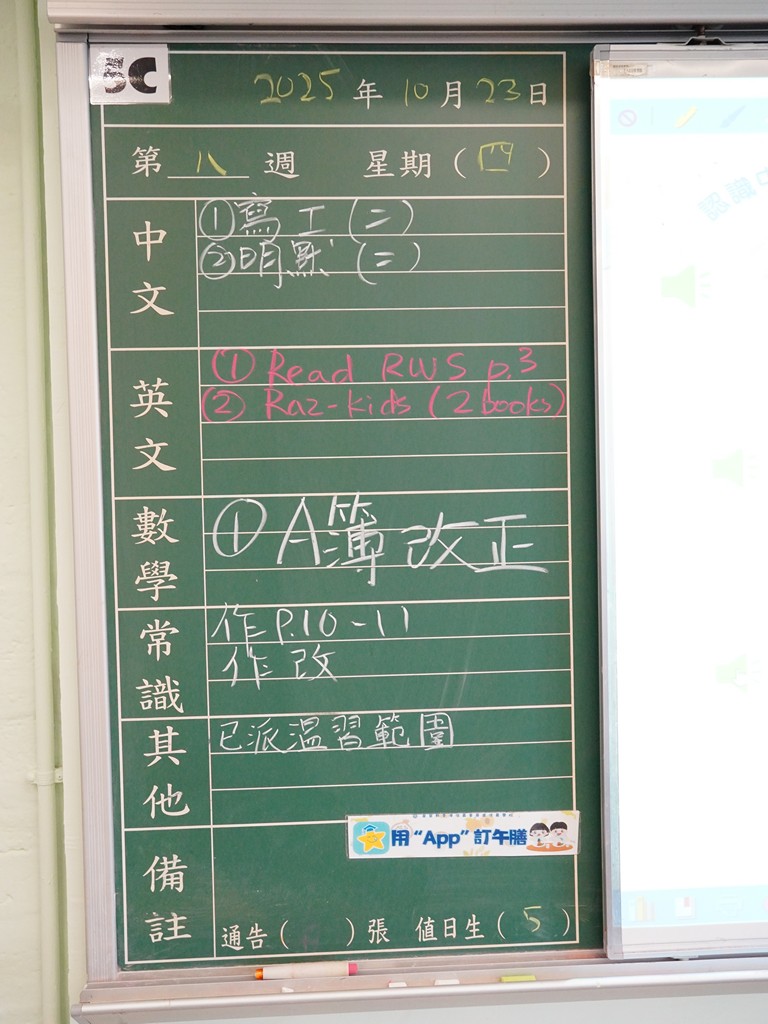 5C
2025年10月23日
第八週 星期(四)
中文
①寫工(二)
②明默(二)
英文
① Read RWS p.3
② Raz-kids (2 books)
數學
① A簿改正
常識
作P.10-11
作改
其他
已派溫習範圍
用“App”訂午膳
備註
通告( )張 值日生(5)